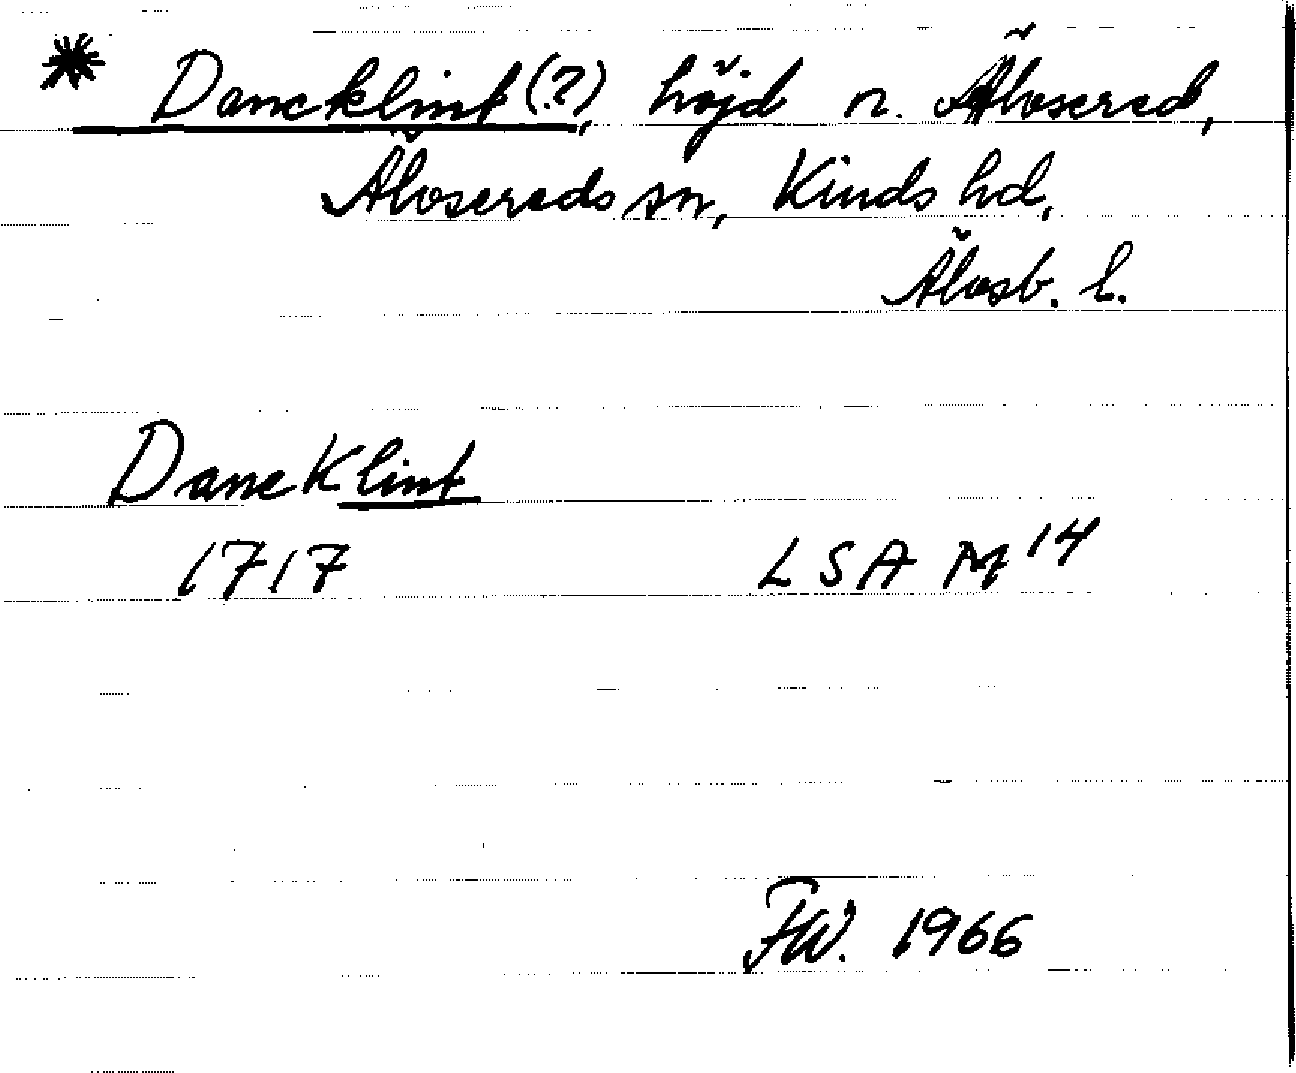 * Dancklint (?), höjd n. Älvsered,
Älvsereds sn, Kinds hd,
Älvsb. l.
DancKlint
1717 LSA M 14
FW. 1966